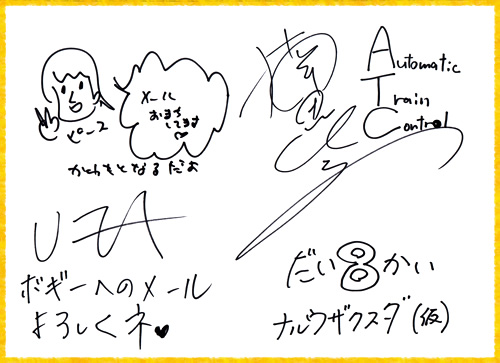 メール
おまち
してます♡
ピース
かとうもとなるだお
Automatic
Train
Control
UZA
ボギーへのメール
よろしくネ♥
だい8かい
ナルウザクスダ(仮)